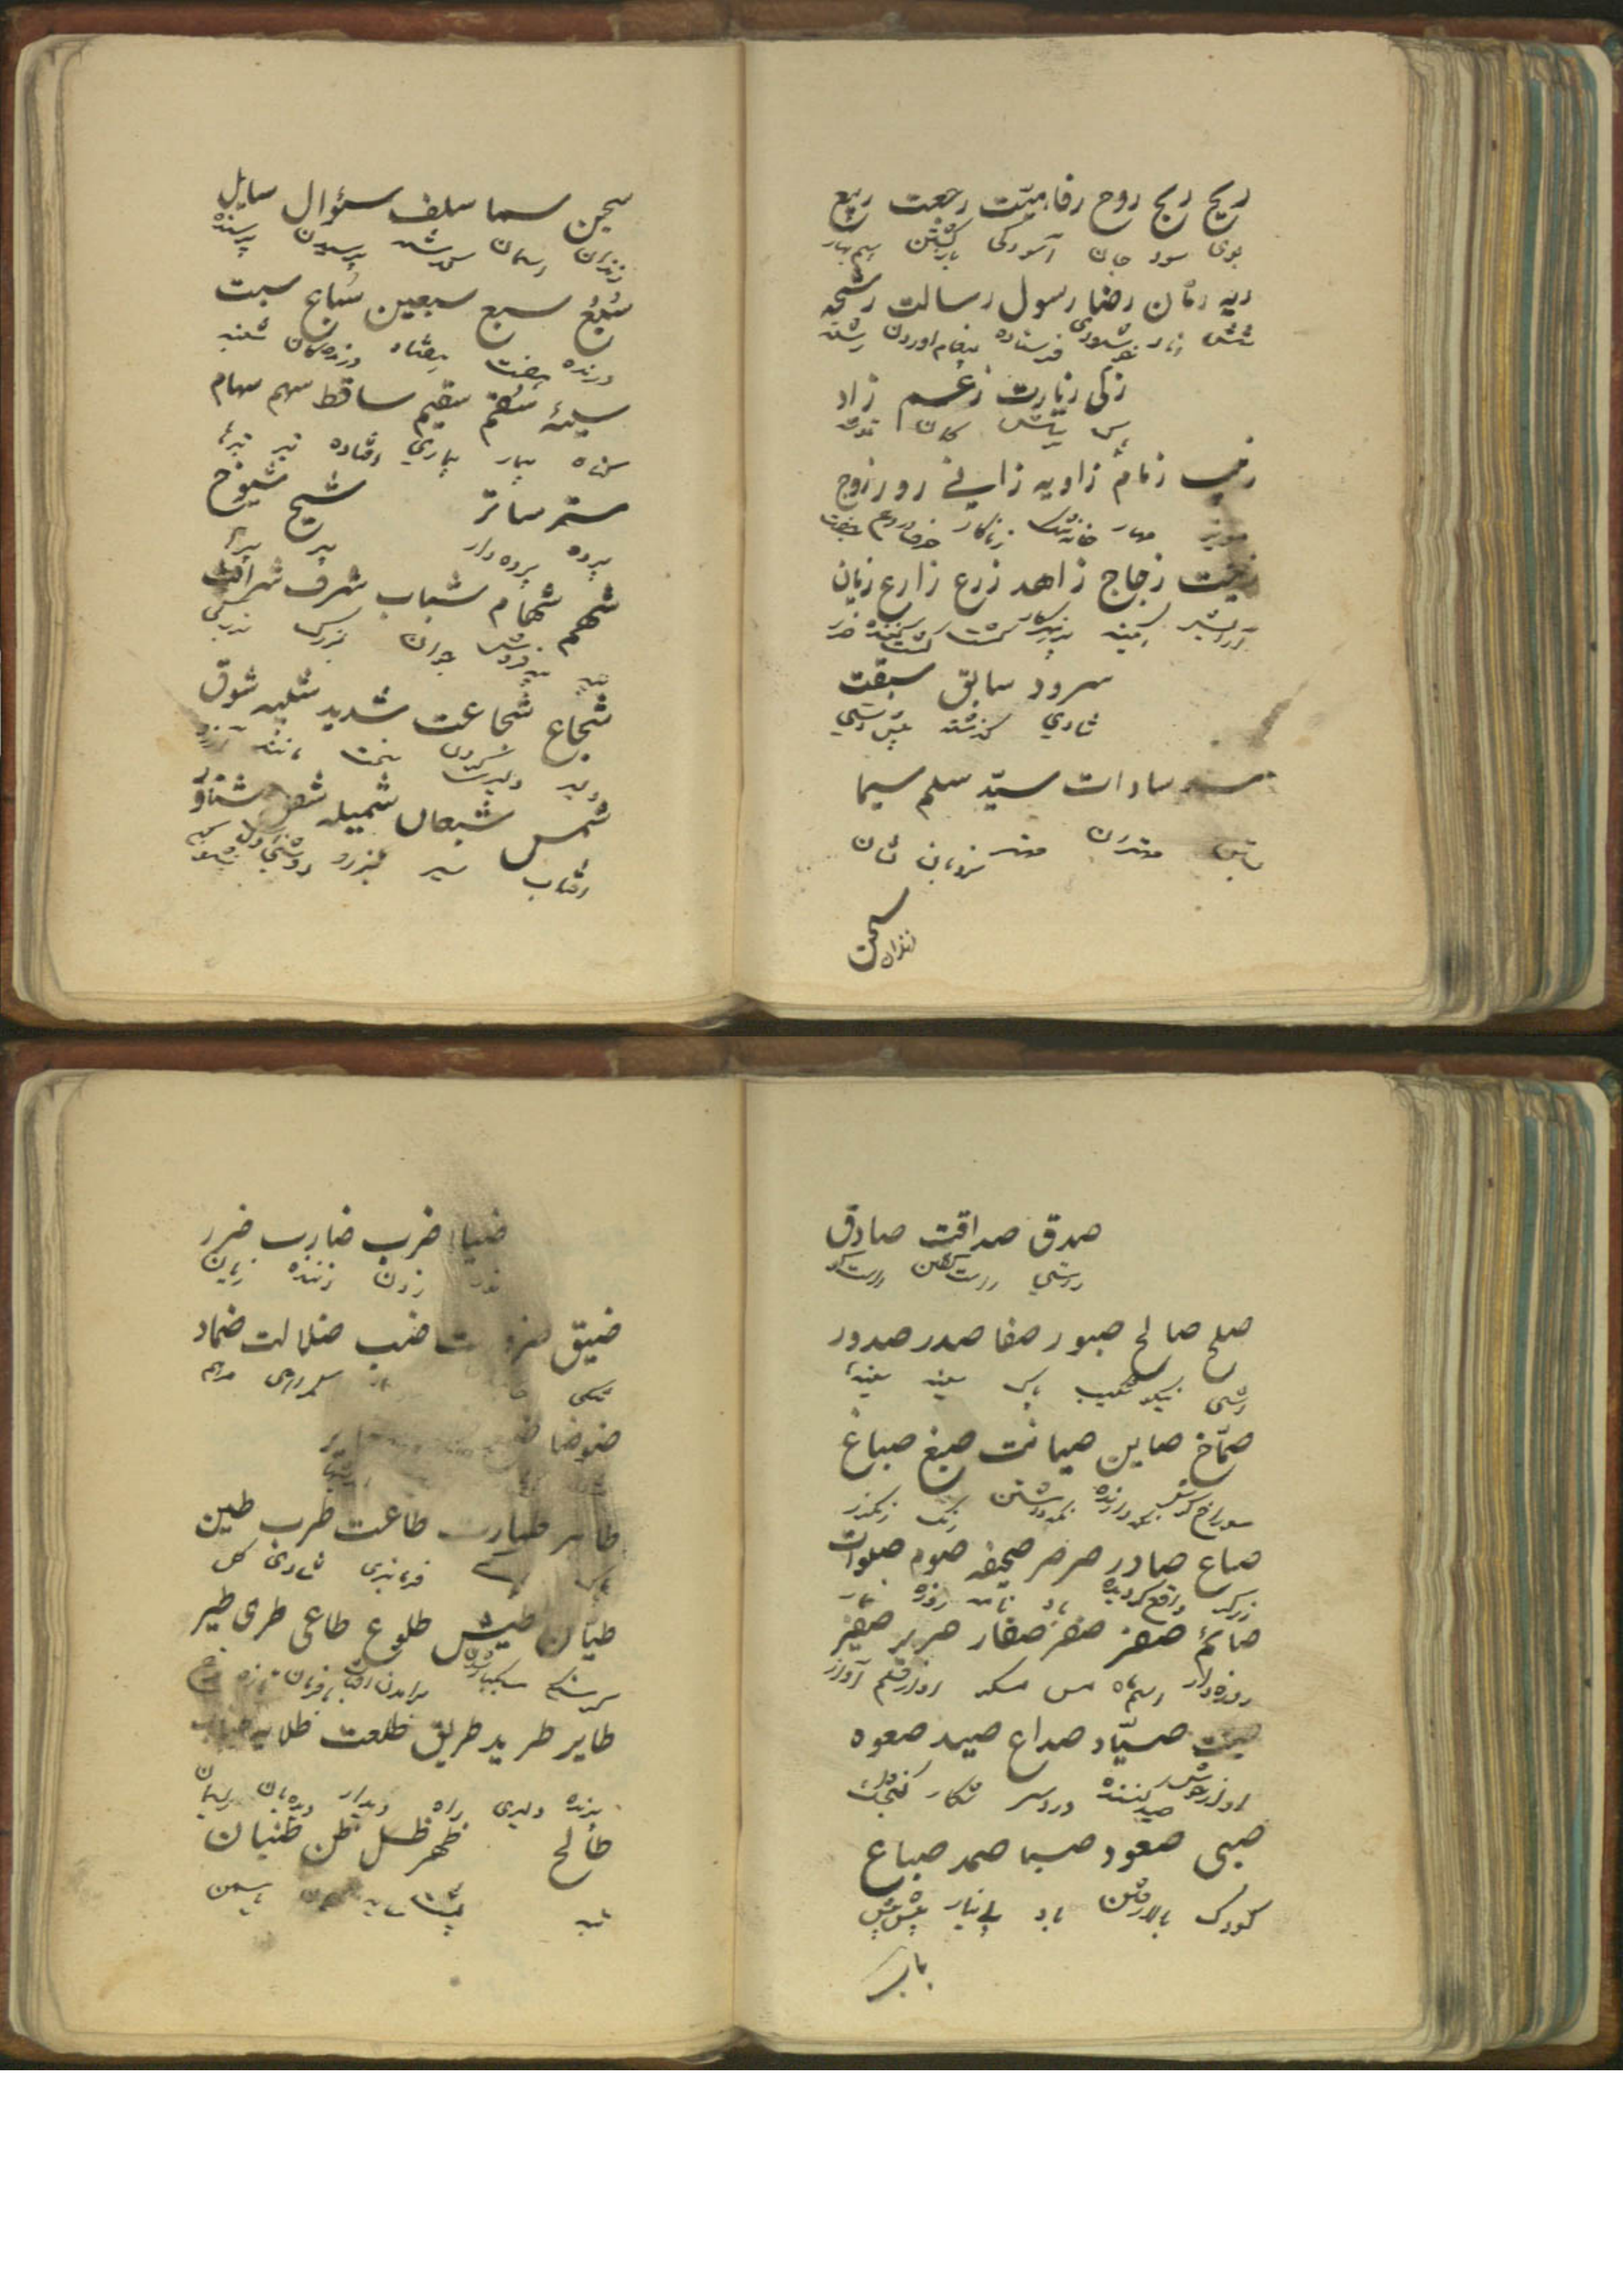 ریح ربح روح رفاهیت رجعت ربیع
بوی سود جان آسودگی بازگشتن بهار
ریه رمان رضا رسول رسالت رشحه
شش انار خوشنودی فرستاده پیغام آوردن
زکی زیارت زعم زاد
پاک کمان توشه
زبیب زمام زاویه زانی زور زوج
مویز مهار زناکار جفت
زینت زجاج زاهد زرع زارع زیان
آرایش پرهیزکار کشت کشت کننده ضرر
سرود سابق سبقت
شادی گذشته پیش
سادات سید سلم سیما
مهتران مهتر نردبان نشان
سجن
زندان
سجین سما سلف سؤال سایل
زندان آسمان گذشته پرسیدن پرسنده
سبع سبع سبعین سباع سبت
درنده هفت هفتاد درندهگان شنبه
سیئه سقم سقیم ساقط سهم سهام
گناه بیمار بیماری افتاده تیر تیرها
ستر ساتر شیخ شیوخ
پرده پرده دار پیر پیرها
شهم شهام شباب شرف شرافت
جوان بزرگ بزرگی
شجاع شجاعت شدید شبیه شوق
دلیر دلیری سخت مانند آرزو
شمس شبعان شمیله
آفتاب سیر
صدق صداقت صادق
راستی راست گفتن راست گو
صلح صالح صبور صفا صدر صدور
آشتی نیکو شکیب پاک سینه سینها
صماخ صاین صیانت صبغ صباغ
سوراخ گوش نگهدارنده نگهداشتن رنگ رنگرز
صاع صادر صرصر صحیفه صوم صلوات
واقع گردیده باد نامه روزه نماز
صائم صفر صفر صفار صریر صفیر
روزه دار اسم ماه مس مسگر آواز قلم آواز
صیت صیاد صداع صید صعوه
آواز خوش صید کننده درد سر شکار گنجشک
صبی صعود صبا صمد صباغ
کودک بالا رفتن باد بی نیاز
باب
ضیا ضرب ضارب ضرر
نور زدن زننده زیان
ضیق ضب ضلالت ضماد
تنگی گمراهی مرهم
ضوضا
طاهر طهارت طاعت طرب طین
پاک پاکی فرمانبری شادی گل
طیان طیش طلوع طاغی طری طیر
گرسنه سبکبار شدن برآمدن آفتاب نافرمان تازه مرغ
طایر طرید طریق طلعت طلایه
پرنده دلیری راه دیدار دیدهبان
طالح ظهر ظل ظن ظنیان
پشت سایه یاسمن